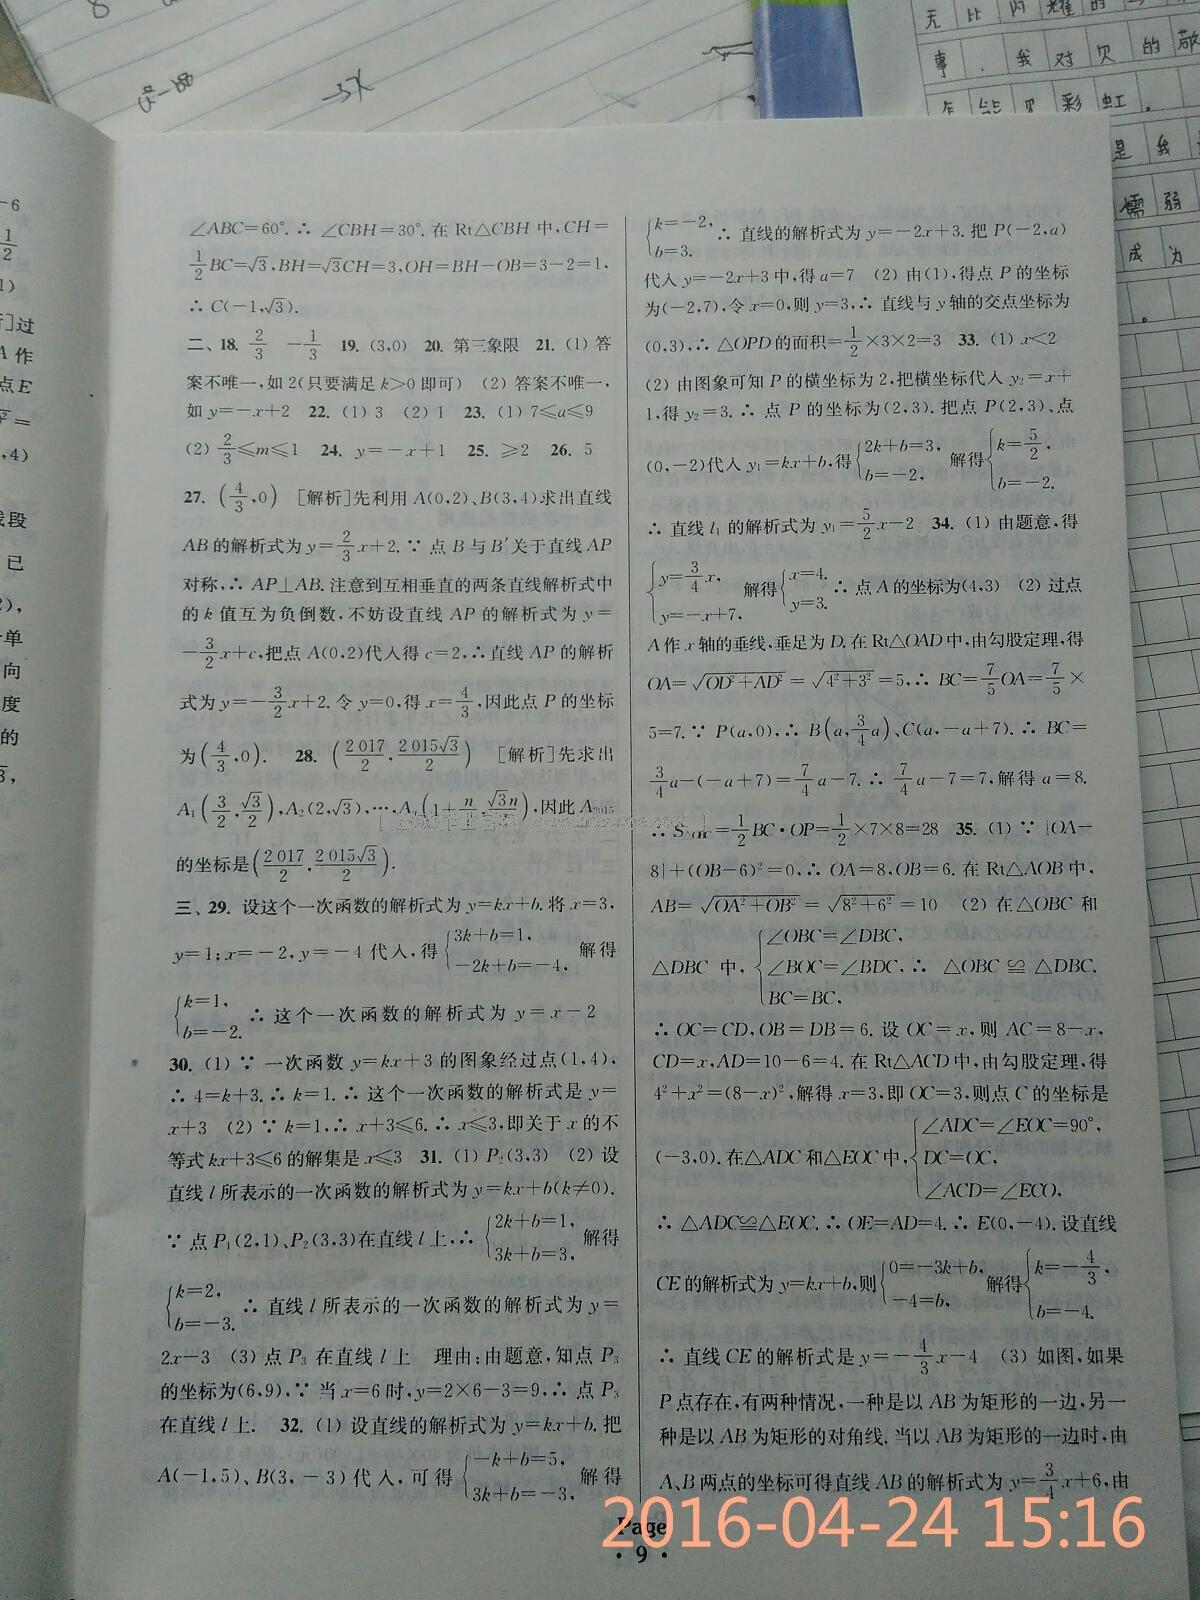 无比闪耀的
事.我对贝的敬
能贝彩虹。
是我
懦弱
成为
-6
1
2
1)
]过
A作
点E
,4)
线段
已
2),
单
向
度
的
3,
∠ABC=60°.∴ ∠CBH=30°.在 Rt△CBH 中,CH=
1/2 BC=√3,BH=√3CH=3,OH=BH-OB=3-2=1,
∴ C(-1,√3).
二、18. 2/3 -1/3 19. (3,0) 20. 第三象限 21. (1) 答
案不唯一,如 2(只要满足 k>0 即可) (2) 答案不唯一,
如 y=-x+2 22. (1) 3 (2) 1 23. (1) 7≤a≤9
(2) 2/3≤m≤1 24. y=-x+1 25. ≥2 26. 5
27. (4/3,0) [解析]先利用 A(0,2)、B(3,4)求出直线
AB的解析式为 y=2/3 x+2.∵ 点 B 与 B′关于直线 AP
对称,∴ AP⊥AB.注意到互相垂直的两条直线解析式中
的 k 值互为负倒数,不妨设直线 AP 的解析式为 y=
-3/2 x+c,把点 A(0,2)代入得 c=2,∴直线 AP 的解析
式为 y=-3/2 x+2.令 y=0,得 x=4/3,因此点 P 的坐标
为(4/3,0). 28. (2 017/2,2 015√3/2) [解析]先求出
A₁(3/2,√3/2),A₂(2,√3),…,Aₙ(1+n/2,√3n/2),因此 A₂₀₁₅
的坐标是(2 017/2,2 015√3/2).
三、29. 设这个一次函数的解析式为 y=kx+b.将 x=3,
y=1;x=-2,y=-4 代入,得{3k+b=1, -2k+b=-4, 解得
{k=1, b=-2. ∴ 这个一次函数的解析式为 y=x-2
30. (1) ∵ 一次函数 y=kx+3 的图象经过点(1,4),
∴ 4=k+3.∴ k=1.∴ 这个一次函数的解析式是 y=
x+3 (2) ∵ k=1,∴ x+3≤6.∴ x≤3,即关于 x 的不
等式 kx+3≤6 的解集是 x≤3 31. (1) P₂(3,3) (2) 设
直线 l 所表示的一次函数的解析式为 y=kx+b(k≠0).
∵ 点 P₁(2,1)、P₂(3,3)在直线 l 上,∴{2k+b=1, 3k+b=3, 解得
{k=2, b=-3. ∴ 直线 l 所表示的一次函数的解析式为 y=
2x-3 (3) 点 P₃ 在直线 l 上 理由:由题意,知点 P₃
的坐标为(6,9),∵ 当 x=6 时,y=2×6-3=9,∴ 点 P₃
在直线 l 上. 32. (1) 设直线的解析式为 y=kx+b.把
A(-1,5)、B(3,-3)代入,可得{-k+b=5, 3k+b=-3, 解得
{k=-2, b=3. ∴ 直线的解析式为 y=-2x+3.把 P(-2,a)
代入 y=-2x+3 中,得 a=7 (2) 由(1),得点 P 的坐标
为(-2,7),令 x=0,则 y=3,∴ 直线与 y 轴的交点坐标为
(0,3),∴ △OPD 的面积=1/2×3×2=3 33. (1) x<2
(2) 由图象可知 P 的横坐标为 2,把横坐标代入 y₂=x+
1,得 y₂=3.∴ 点 P 的坐标为(2,3).把点 P(2,3)、点
(0,-2)代入 y₁=kx+b,得{2k+b=3, b=-2, 解得{k=5/2, b=-2.
∴ 直线 l₁ 的解析式为 y₁=5/2 x-2 34. (1) 由题意,得
{y=3/4 x, y=-x+7, 解得{x=4, y=3. ∴ 点 A 的坐标为(4,3) (2) 过点
A 作 x 轴的垂线,垂足为 D.在 Rt△OAD 中,由勾股定理,得
OA=√(OD²+AD²)=√(4²+3²)=5,∴ BC=7/5 OA=7/5×
5=7.∵ P(a,0),∴ B(a,3/4 a)、C(a,-a+7).∴ BC=
3/4 a-(-a+7)=7/4 a-7.∴ 7/4 a-7=7,解得 a=8.
∴ S△OBC=1/2 BC·OP=1/2×7×8=28 35. (1) ∵ |OA-
8|+(OB-6)²=0,∴ OA=8,OB=6.在 Rt△AOB 中,
AB=√(OA²+OB²)=√(8²+6²)=10 (2) 在△OBC 和
△DBC 中,{∠OBC=∠DBC, ∠BOC=∠BDC, BC=BC, ∴ △OBC≌△DBC.
∴ OC=CD,OB=DB=6.设 OC=x,则 AC=8-x,
CD=x,AD=10-6=4.在 Rt△ACD 中,由勾股定理,得
4²+x²=(8-x)²,解得 x=3,即 OC=3,则点 C 的坐标是
(-3,0).在△ADC 和△EOC 中,{∠ADC=∠EOC=90°, DC=OC, ∠ACD=∠ECO,
∴ △ADC≌△EOC.∴ OE=AD=4.∴ E(0,-4).设直线
CE 的解析式为 y=kx+b,则{0=-3k+b, -4=b, 解得{k=-4/3, b=-4.
∴ 直线 CE 的解析式是 y=-4/3 x-4 (3) 如图,如果
P 点存在,有两种情况,一种是以 AB 为矩形的一边,另一
种是以 AB 为矩形的对角线.当以 AB 为矩形的一边时,由
A、B 两点的坐标可得直线 AB 的解析式为 y=3/4 x+6,由
Page
·9·
2016-04-24 15:16